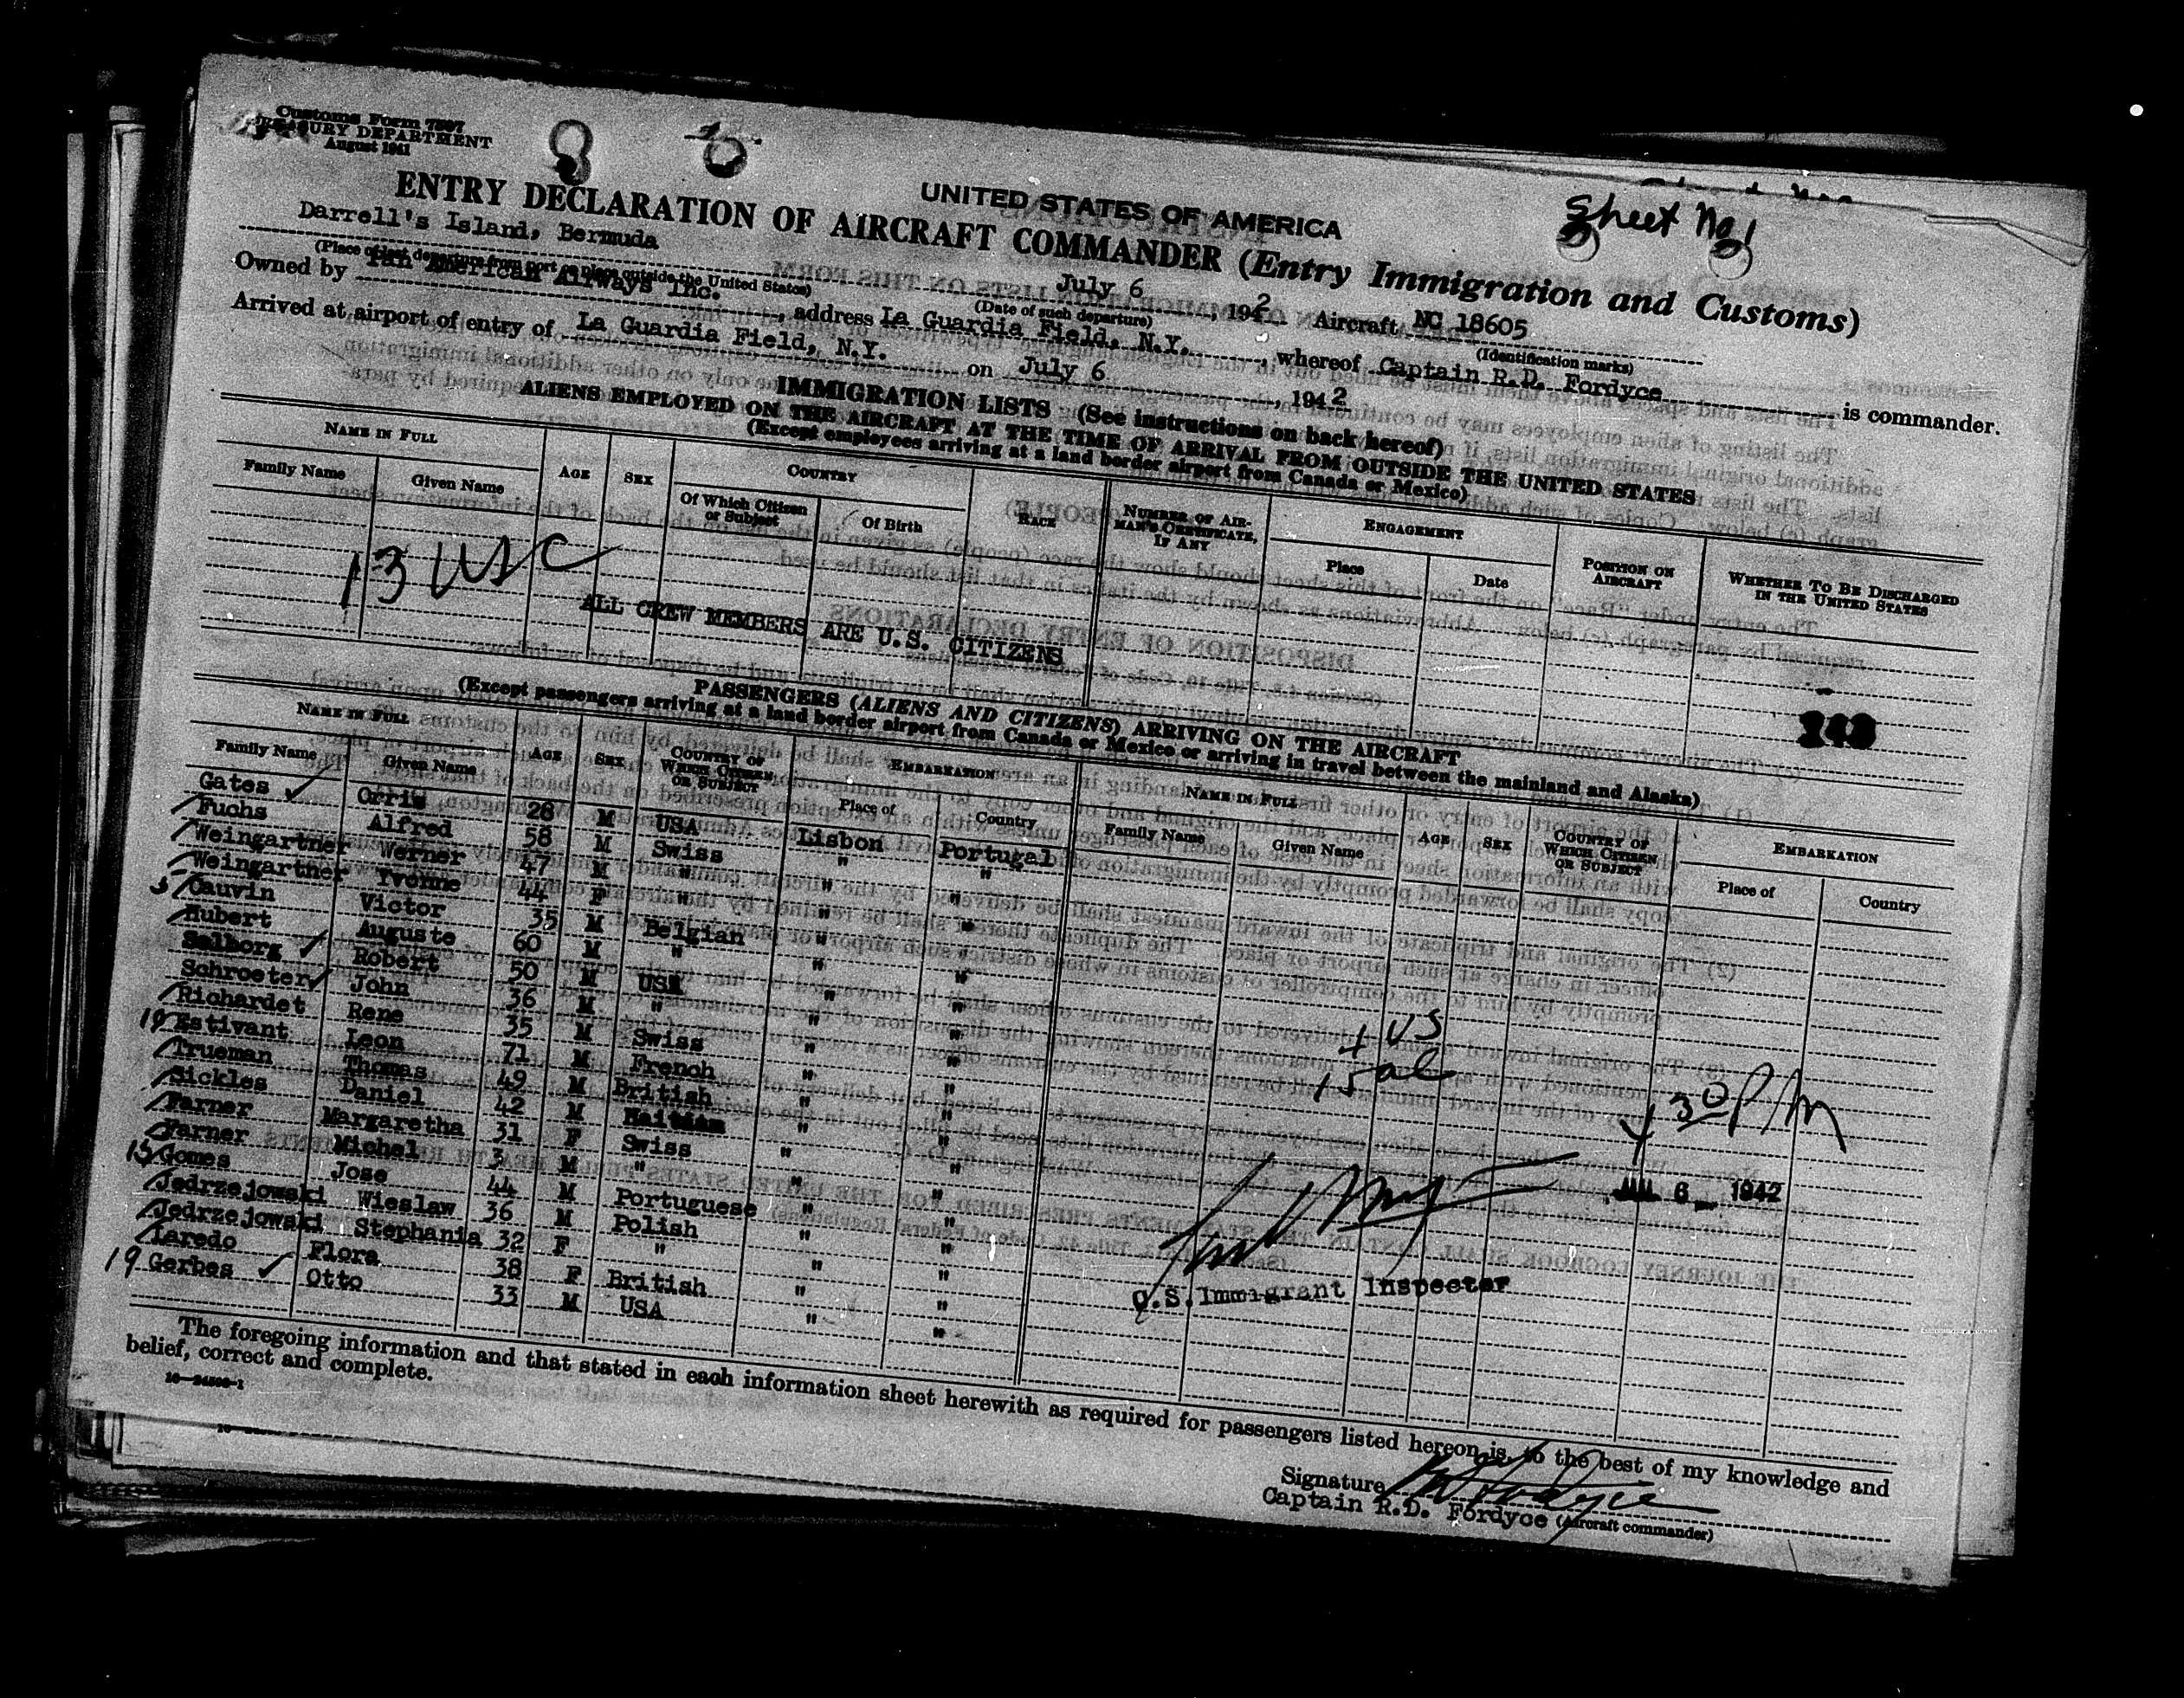 Customs Form 7507
TREASURY DEPARTMENT
August 1941
UNITED STATES OF AMERICA
Sheet No 1
ENTRY DECLARATION OF AIRCRAFT COMMANDER (Entry Immigration and Customs)
Darrell's Island, Bermuda July 6, 1942 Aircraft NC 18605
(Place of last departure from port or place outside the United States) (Date of such departure) (Identification marks)
Owned by Pan American Airways Inc., address La Guardia Field, N.Y., whereof Captain R.D. Fordyce is commander.
Arrived at airport of entry of La Guardia Field, N.Y. on July 6, 1942
IMMIGRATION LISTS (See instructions on back hereof)
ALIENS EMPLOYED ON THE AIRCRAFT AT THE TIME OF ARRIVAL FROM OUTSIDE THE UNITED STATES
(Except employees arriving at a land border airport from Canada or Mexico)
NAME IN FULL AGE SEX COUNTRY RACE NUMBER OF AIRMAN'S CERTIFICATE, IF ANY ENGAGEMENT POSITION ON AIRCRAFT WHETHER TO BE DISCHARGED IN THE UNITED STATES
Family Name Given Name Of Which Citizen or Subject Of Birth Place Date
13 USC
ALL CREW MEMBERS ARE U.S. CITIZENS
PASSENGERS (ALIENS AND CITIZENS) ARRIVING ON THE AIRCRAFT
(Except passengers arriving at a land border airport from Canada or Mexico or arriving in travel between the mainland and Alaska)
NAME IN FULL AGE SEX COUNTRY OF WHICH CITIZEN OR SUBJECT EMBARKATION NAME IN FULL AGE SEX COUNTRY OF WHICH CITIZEN OR SUBJECT EMBARKATION
Family Name Given Name Place of Country Family Name Given Name Place of Country
Gates Orris 28 M USA Lisbon Portugal
Fuchs Alfred 58 M Swiss " "
Weingartner Werner 47 M " " "
Weingartner Yvonne 44 F " " "
5 Cauvin Victor 35 M Belgian " "
Hubert Auguste 60 M " " "
Solborg Robert 50 M USA " "
Schroeter John 36 M " " "
Richardet Rene 35 M Swiss " "
10 Estivant Leon 71 M French " "
Trueman Thomas 49 M British " "
Sickles Daniel 42 M Haitian " "
Farner Margaretha 31 F Swiss " "
Farner Michel 3 M " " "
15 Gomes Jose 44 M Portuguese " "
Jedrzejowski Wieslaw 36 M Polish " "
Jedrzejowski Stephania 32 F " " "
Laredo Flora 38 F British " "
19 Gerbes Otto 33 M USA " "
4 US
15 al
4 30 PM
JUL 6 1942
U.S. Immigrant Inspector
The foregoing information and that stated in each information sheet herewith as required for passengers listed hereon is, to the best of my knowledge and
belief, correct and complete.
Signature R D Fordyce
Captain R.D. Fordyce (Aircraft commander)